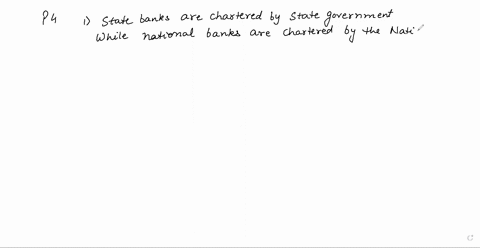 P4 1) State banks are chartered by State government
While national banks are chartered by the Nati